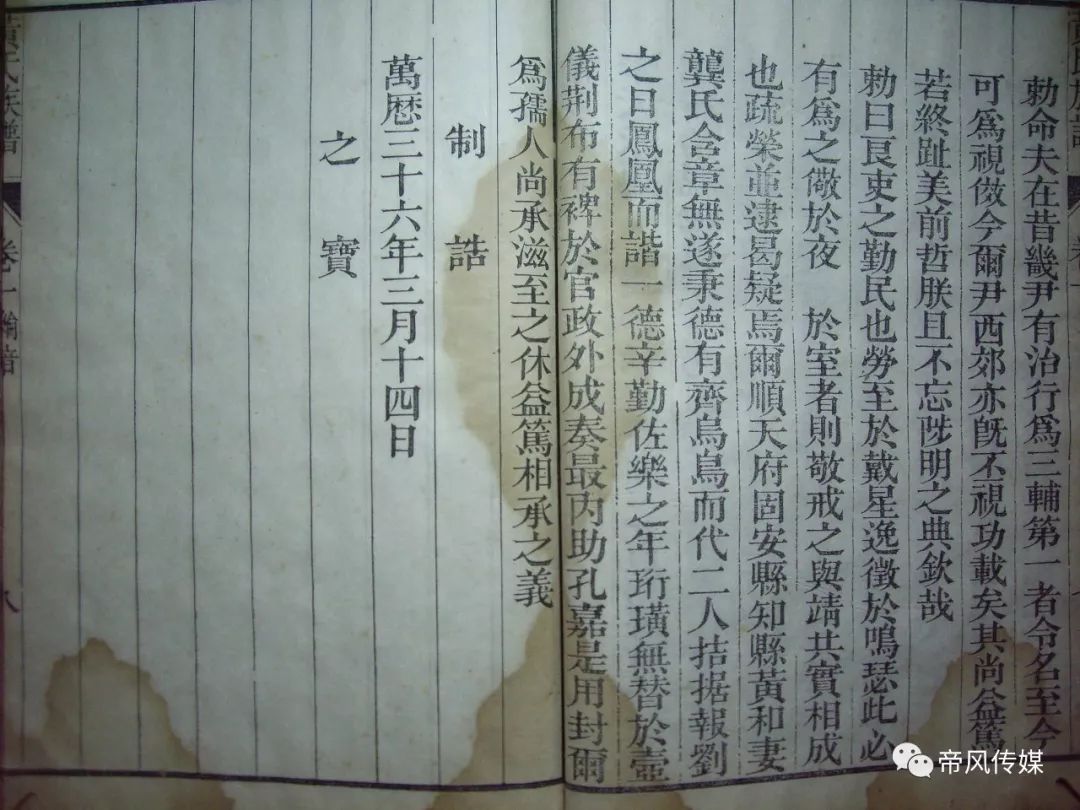 勅命夫在昔畿尹有治行為三輔第一者令名至今
可為視傚今爾尹西郊亦旣丕視功載矣其尚益篤
若終趾美前哲朕且不忘陟明之典欽哉
勅曰良吏之勤民也勞至於戴星逸徵於鳴瑟此必
有為之儆於夜 於室者則敬戒之與靖共實相成
也疏榮並逮曷疑焉爾順天府固安縣知縣黃和妻
龔氏含章無遂秉德有齊烏烏而代二人拮据報劉
之日鳳凰而諧一德辛勤佐樂之年珩璜無替於壺
儀荆布有裨於官政外成奏最內助孔嘉是用封爾
為孺人尚承滋至之休益篤相承之義
制誥
萬歷三十六年三月十四日
之寶
黃氏族譜
卷一 綸音
八
帝风传媒